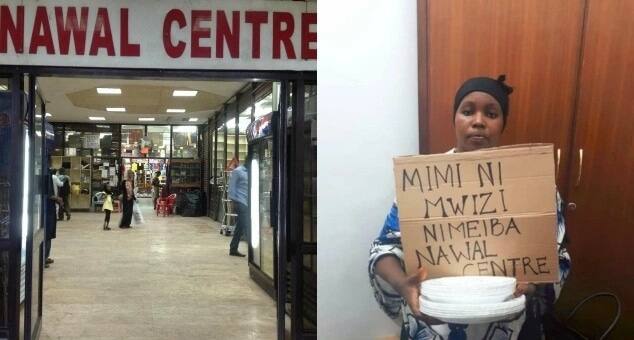 NAWAL CENTRE
MIMI NI
MWIZI
NIMEIBA
NAWAL
CENTRE